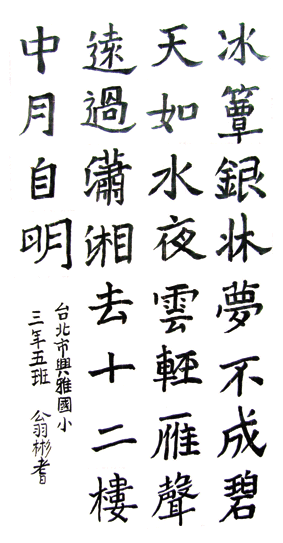 冰簟銀牀夢不成碧
天如水夜雲輕雁聲
遠過瀟湘去十二樓
中月自明
台北市興雅國小
三年五班 翁彬耆